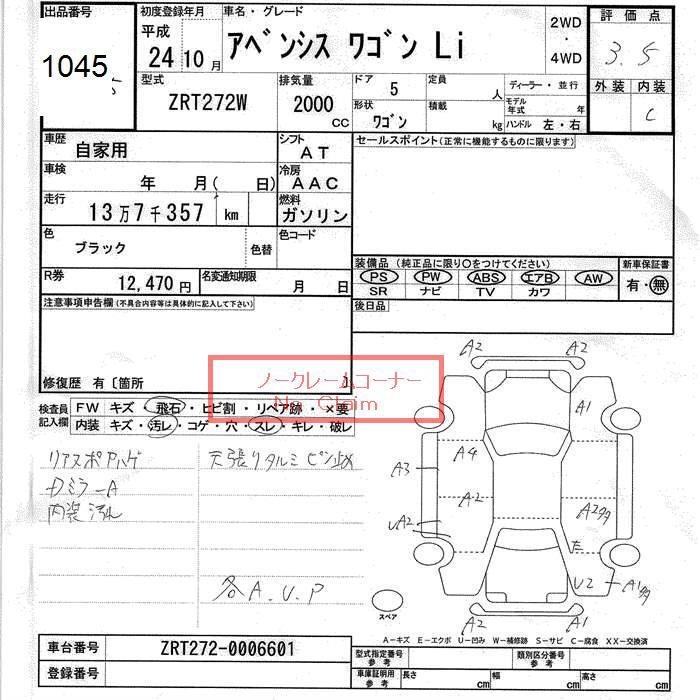 出品番号
1045
初度登録年月
平成
24 10 月
車名・グレード
アベンシス ワゴン Li
2WD
・
4WD
評価点
3.5
型式
ZRT272W
排気量
2000
CC
ドア 5
定員
人
形状
ワゴン
積載
kg
ディーラー・並行
モデル年式
年
ハンドル 左・右
外装 内装
C
車歴
自家用
シフト
AT
車検
年 月( 日)
冷房
AAC
走行
13万7千357 km
燃料
ガソリン
色
ブラック
色替
色コード
R券
12,470 円
名変通知期限
月 日
セールスポイント(正常に機能するものに限ります)
装備品(純正品に限り○をつけてください)
新車保証書
PS PW ABS エアB AW
有・無
SR ナビ TV カワ
後日品
注意事項申告欄(不具合内容等は具体的に記入して下さい)
修復歴 有〔箇所
ノークレームコーナー
No Claim
検査員
記入欄
FW キズ・飛石・ヒビ割・リペア跡・×要
内装 キズ・汚レ・コゲ・穴・スレ・キレ・破レ
リアスポAハゲ
Dミラ-A
内装汚れ
天張りタルミ ピン止め
各A.U.P
A2 A2
A1
A4
A3
A2
UA2
A2タタ
U2
A2 A1
スペア
A-キズ E-エクボ U-凹み W-補修跡 S-サビ C-腐食 XX-交換済
車台番号
ZRT272-0006601
登録番号
型式指定番号
参考
類別区分番号
参考
車庫証明用
参考
長さ
cm
幅
cm
高さ
cm